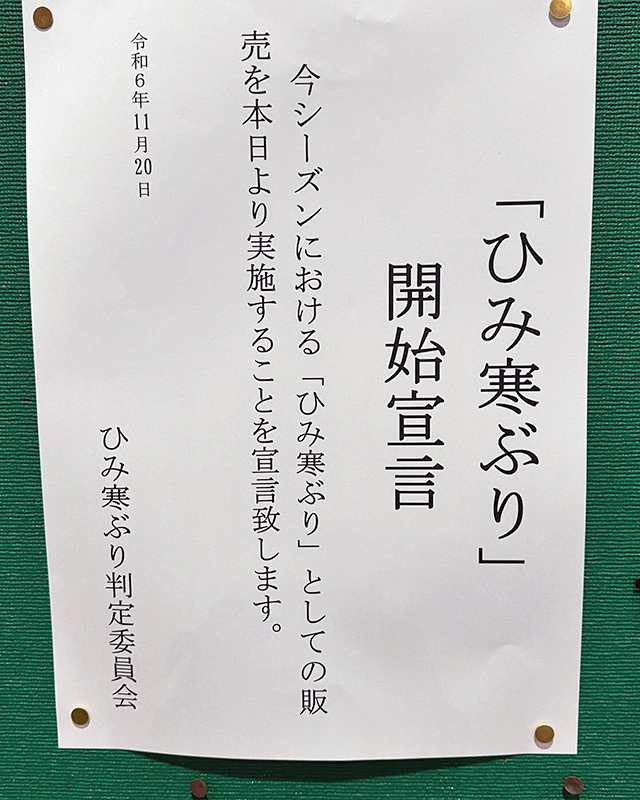 「ひみ寒ぶり」
開始宣言
今シーズンにおける「ひみ寒ぶり」としての販
売を本日より実施することを宣言致します。
令和6年11月20日
ひみ寒ぶり判定委員会